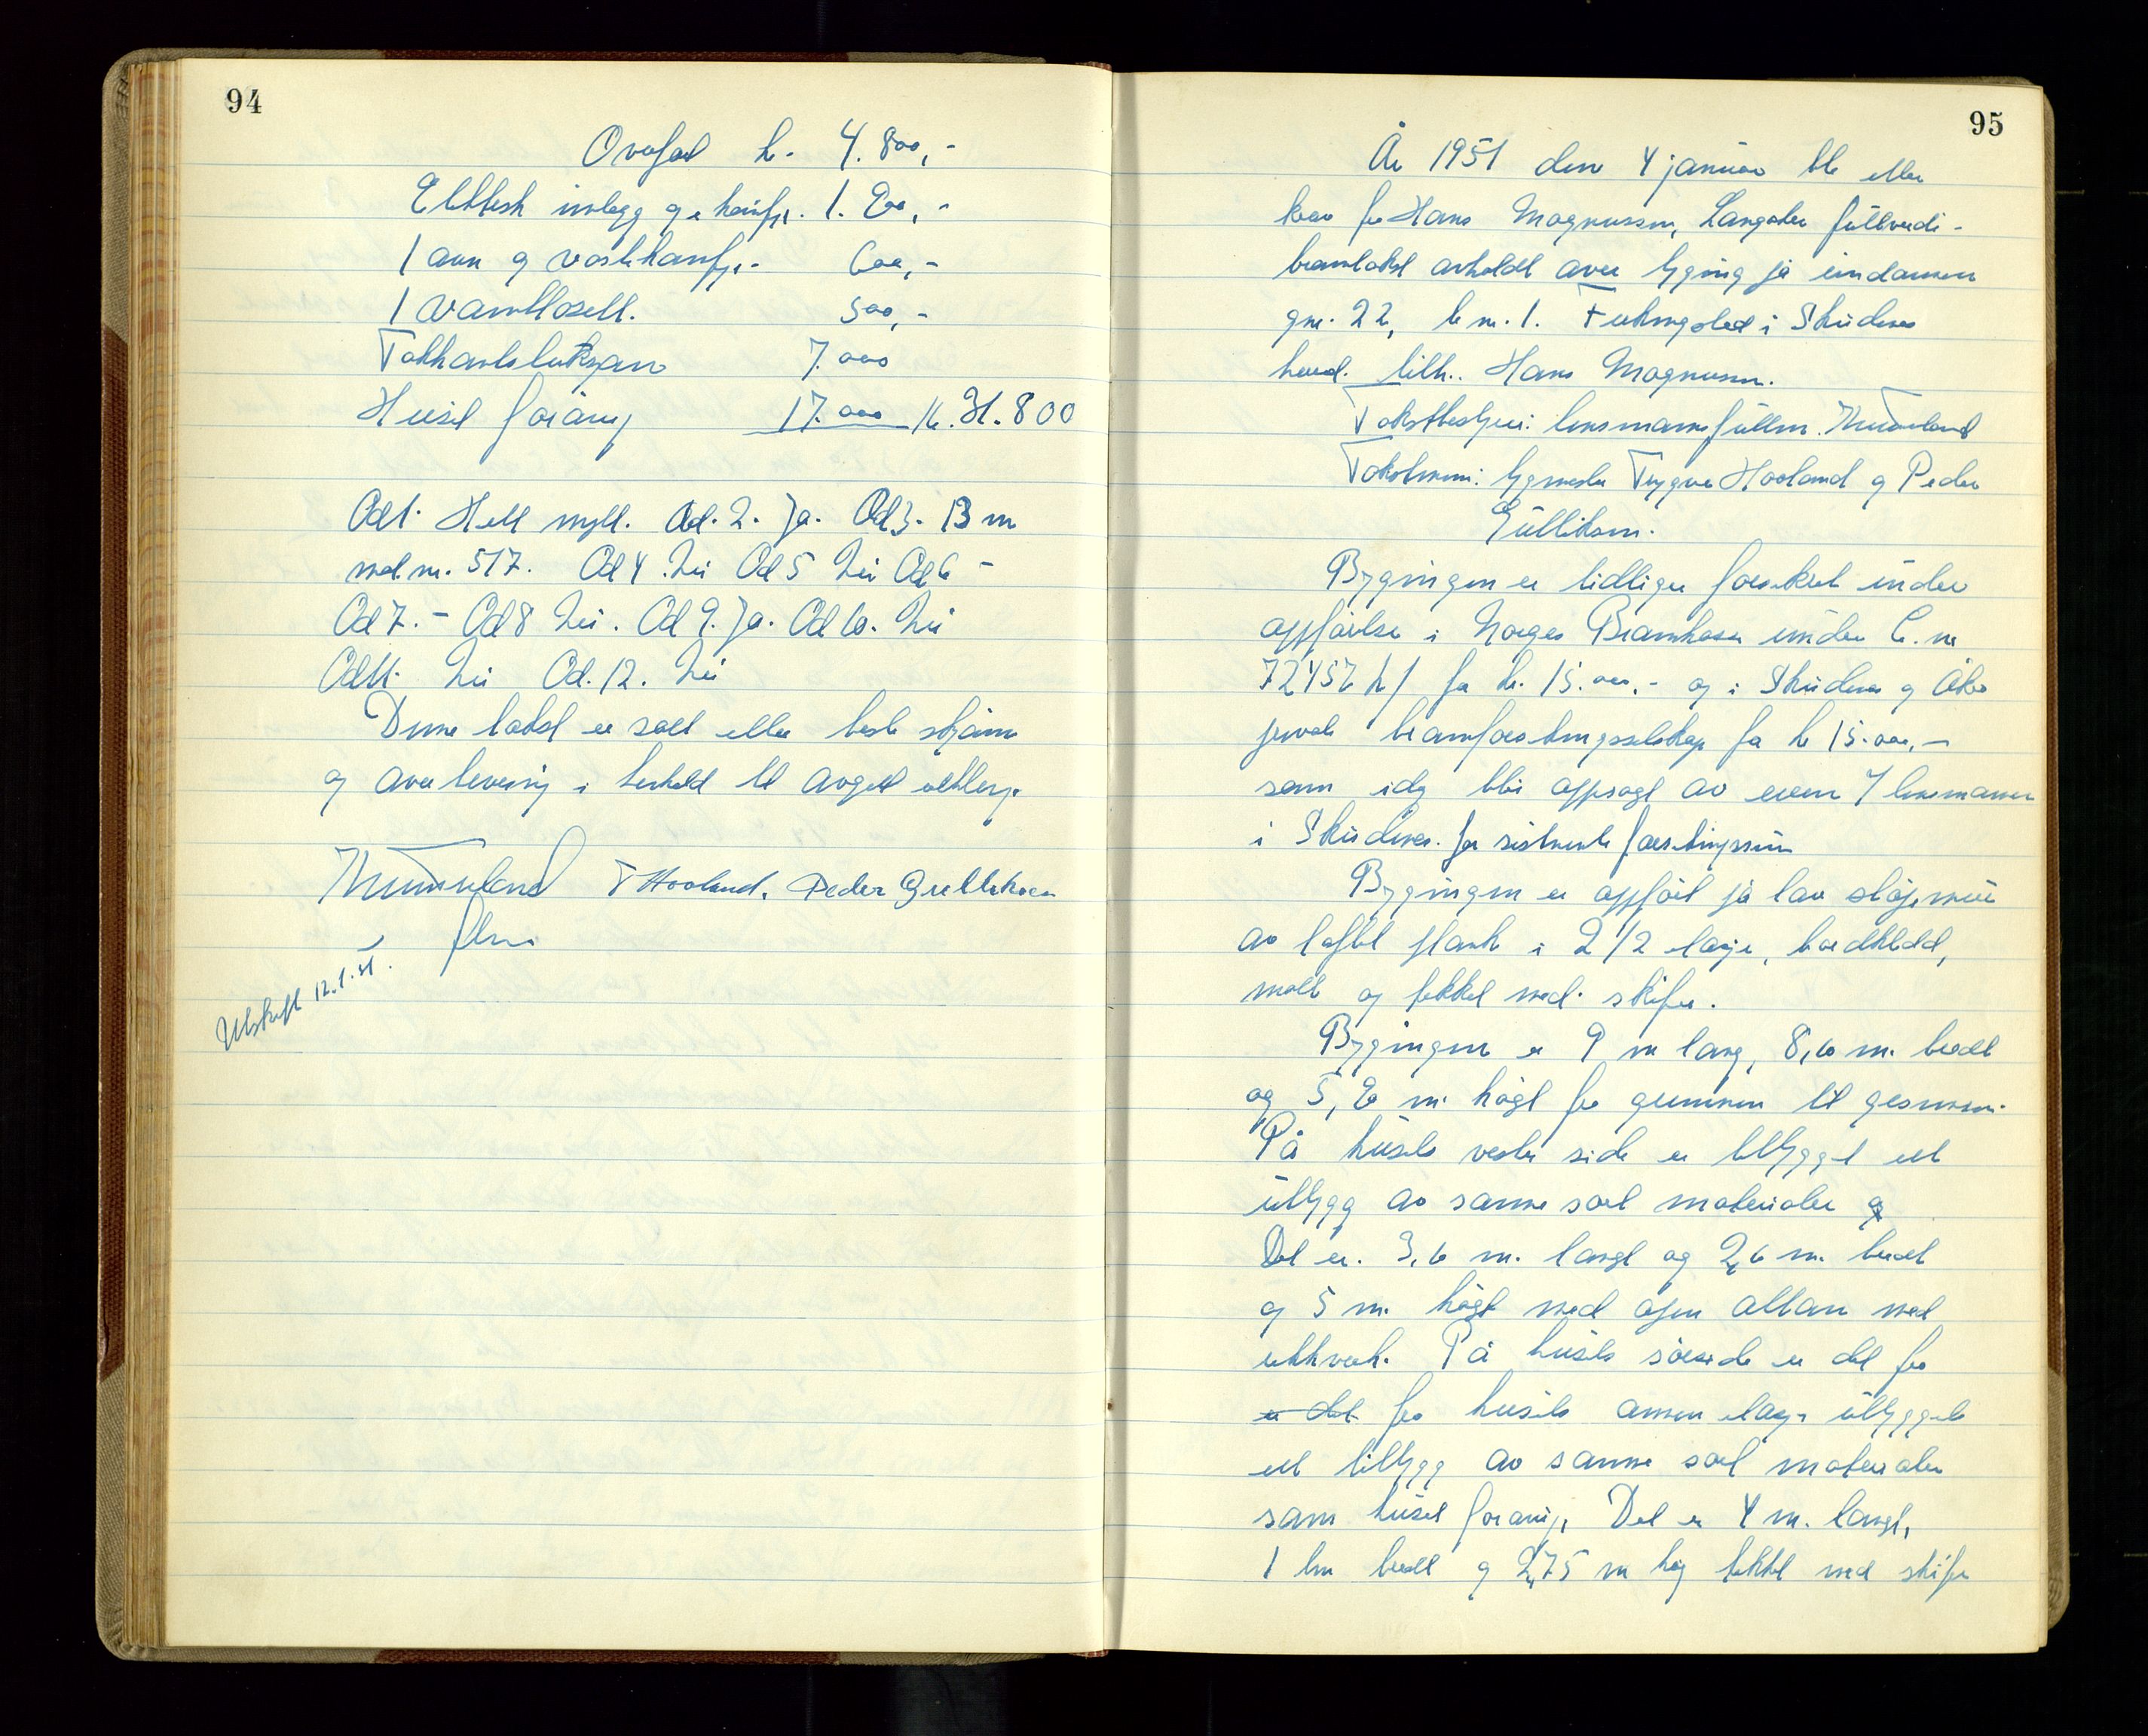 94
Overført kr. 4.800,-
Elektrisk innlegg og e komfyr. 1.200,-
1 ann og vaskekomfyr.- 600,-
1 Vannklosett. 500,-
Takkonstruksjon 7.000
Huset foräurig 17.000 kr. 31.800
Ad 1. Helt nytt. Ad. 2. Ja. Ad 3. 13 m
med nr. 517. Ad 4. Nei Ad 5 Nei Ad 6 -
Ad 7. - Ad 8 Nei. Ad 9. Ja. Ad 10. Nei
Ad 11. Nei Ad. 12. Nei
Denne takst er satt etter beste skjönn
og overbevisning i henhold til avgitt erklæring.
T Hooland. Peder Gulliksen
Utskrift 12.1.51.
95
År 1951 den 4 januar ble etter
krav fra Hans Magnussen, Langaker fullverdi-
branntakst avholdt over bygning på eiendommen
gnr. 22, bnr. 1. i Skudenes
herred. tilh. Hans Magnussen.
Takstbestyrer: lensmannsfullm.
Takstmenn: bygmester Trygve Hooland og Peder
Gulliksen.
Bygningen er tidligere forsikret under
oppförelse i Norges Brannkasse under b. nr
72457 for kr. 15.000.- og i Skudenes og Åkra
private brannforsikringsselskap for kr 15.000,-
som idag blir oppsagt av eieren / lensmannen
i Skudenes. for sistnevnte forsikringssum
Bygningen er oppfört på lav stöpemur
av laftet plank i 2 1/2 etasje, bordkledd,
malt og tekket med skifer.
Bygningen er 9 m lang, 8,60 m. bredt
og 5,20 m. högt fra grunnen til gesimsen.
På husets vestre side er tilbygget ett
utbygg av samme sort materialer og
Det er. 3,6 m. langt og 2,6 m. bredt
og 5 m. högt med åpen altan med
rekkverk. På husets sörside er det fra
er det fra husets annen etasje utbygget
ett tilbygg av samme sort materialer
som huset forövrig. Det er 4 m. langt,
1 bredt og 2,75 m hög tekket med skifer